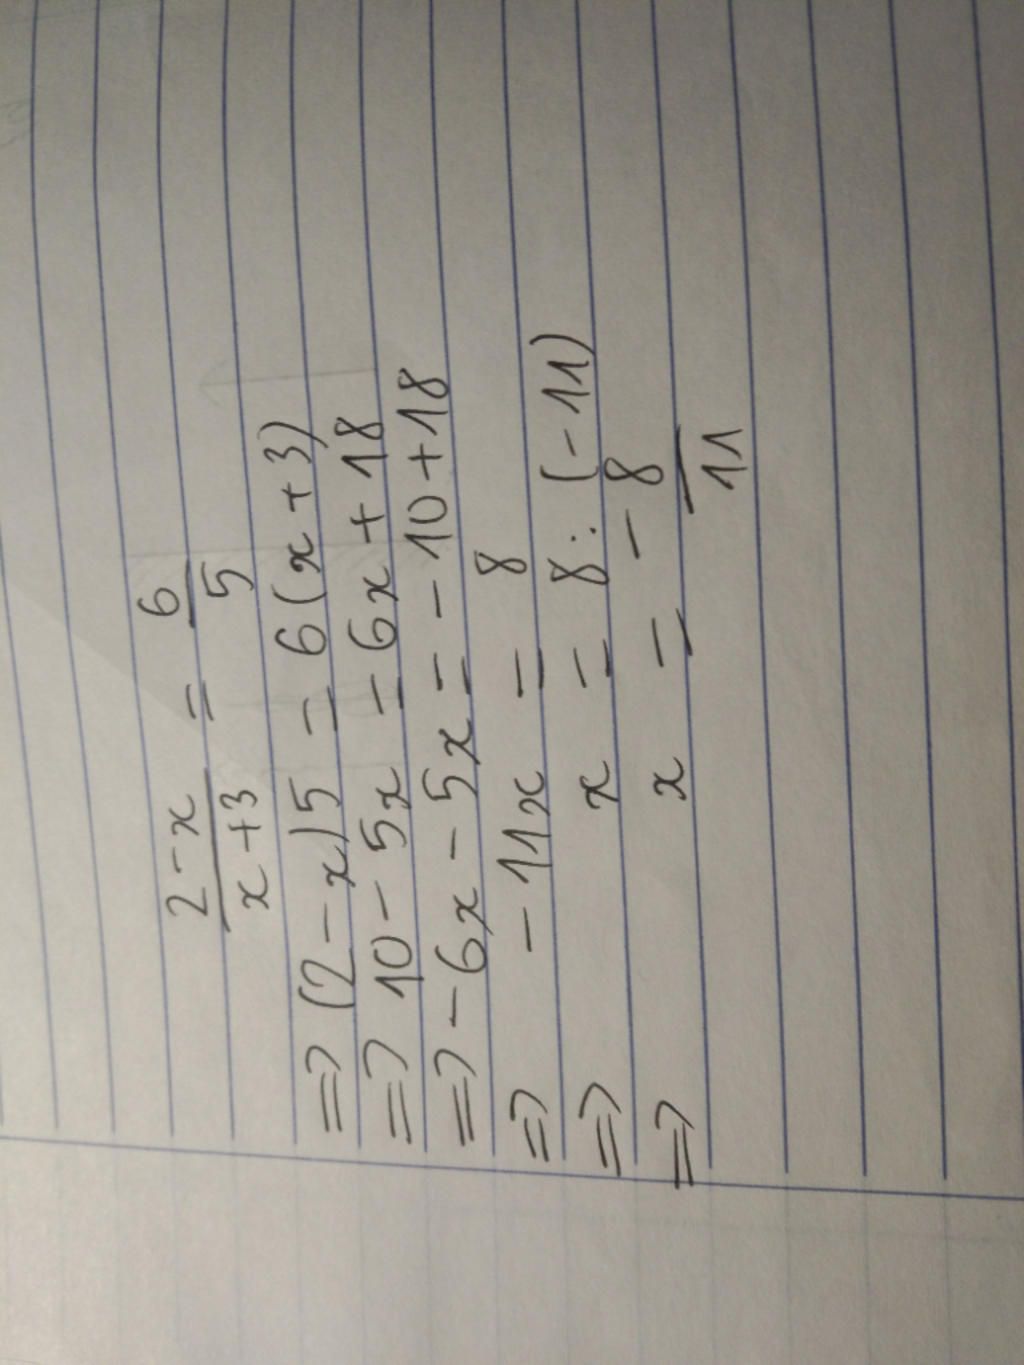 2-x/x+3 = 6/5
=> (2-x)5 = 6(x+3)
=> 10-5x = 6x+18
=> -6x-5x = -10+18
=> -11x = 8
=> x = 8:(-11)
=> x = -8/11